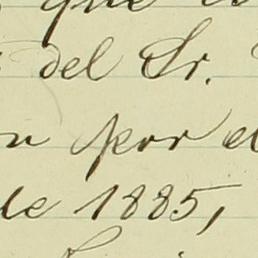 que es
del Sr.
n por e
de 1885,